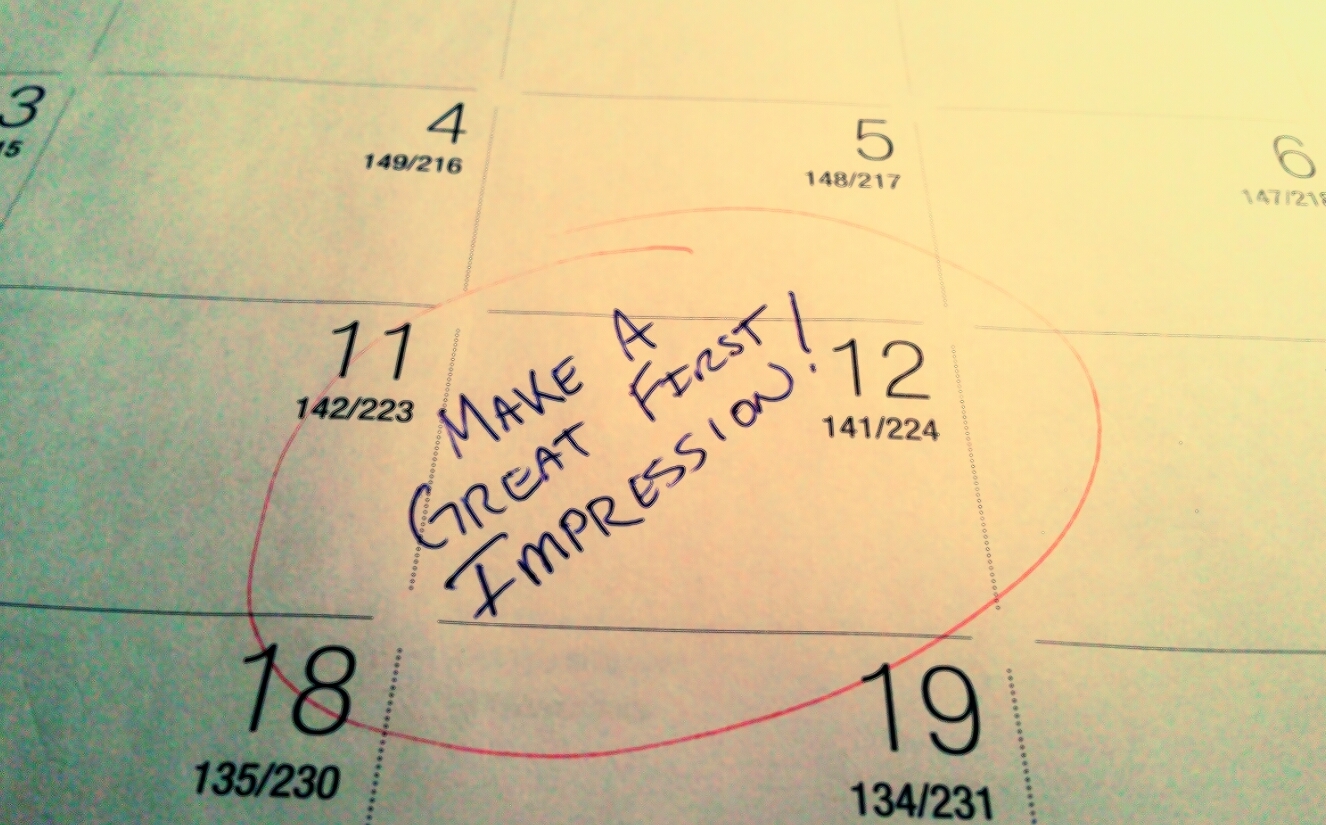 3
4
149/216
5
148/217
6
11
142/223
MAKE A
GREAT FIRST
IMPRESSION!
12
141/224
18
135/230
19
134/231